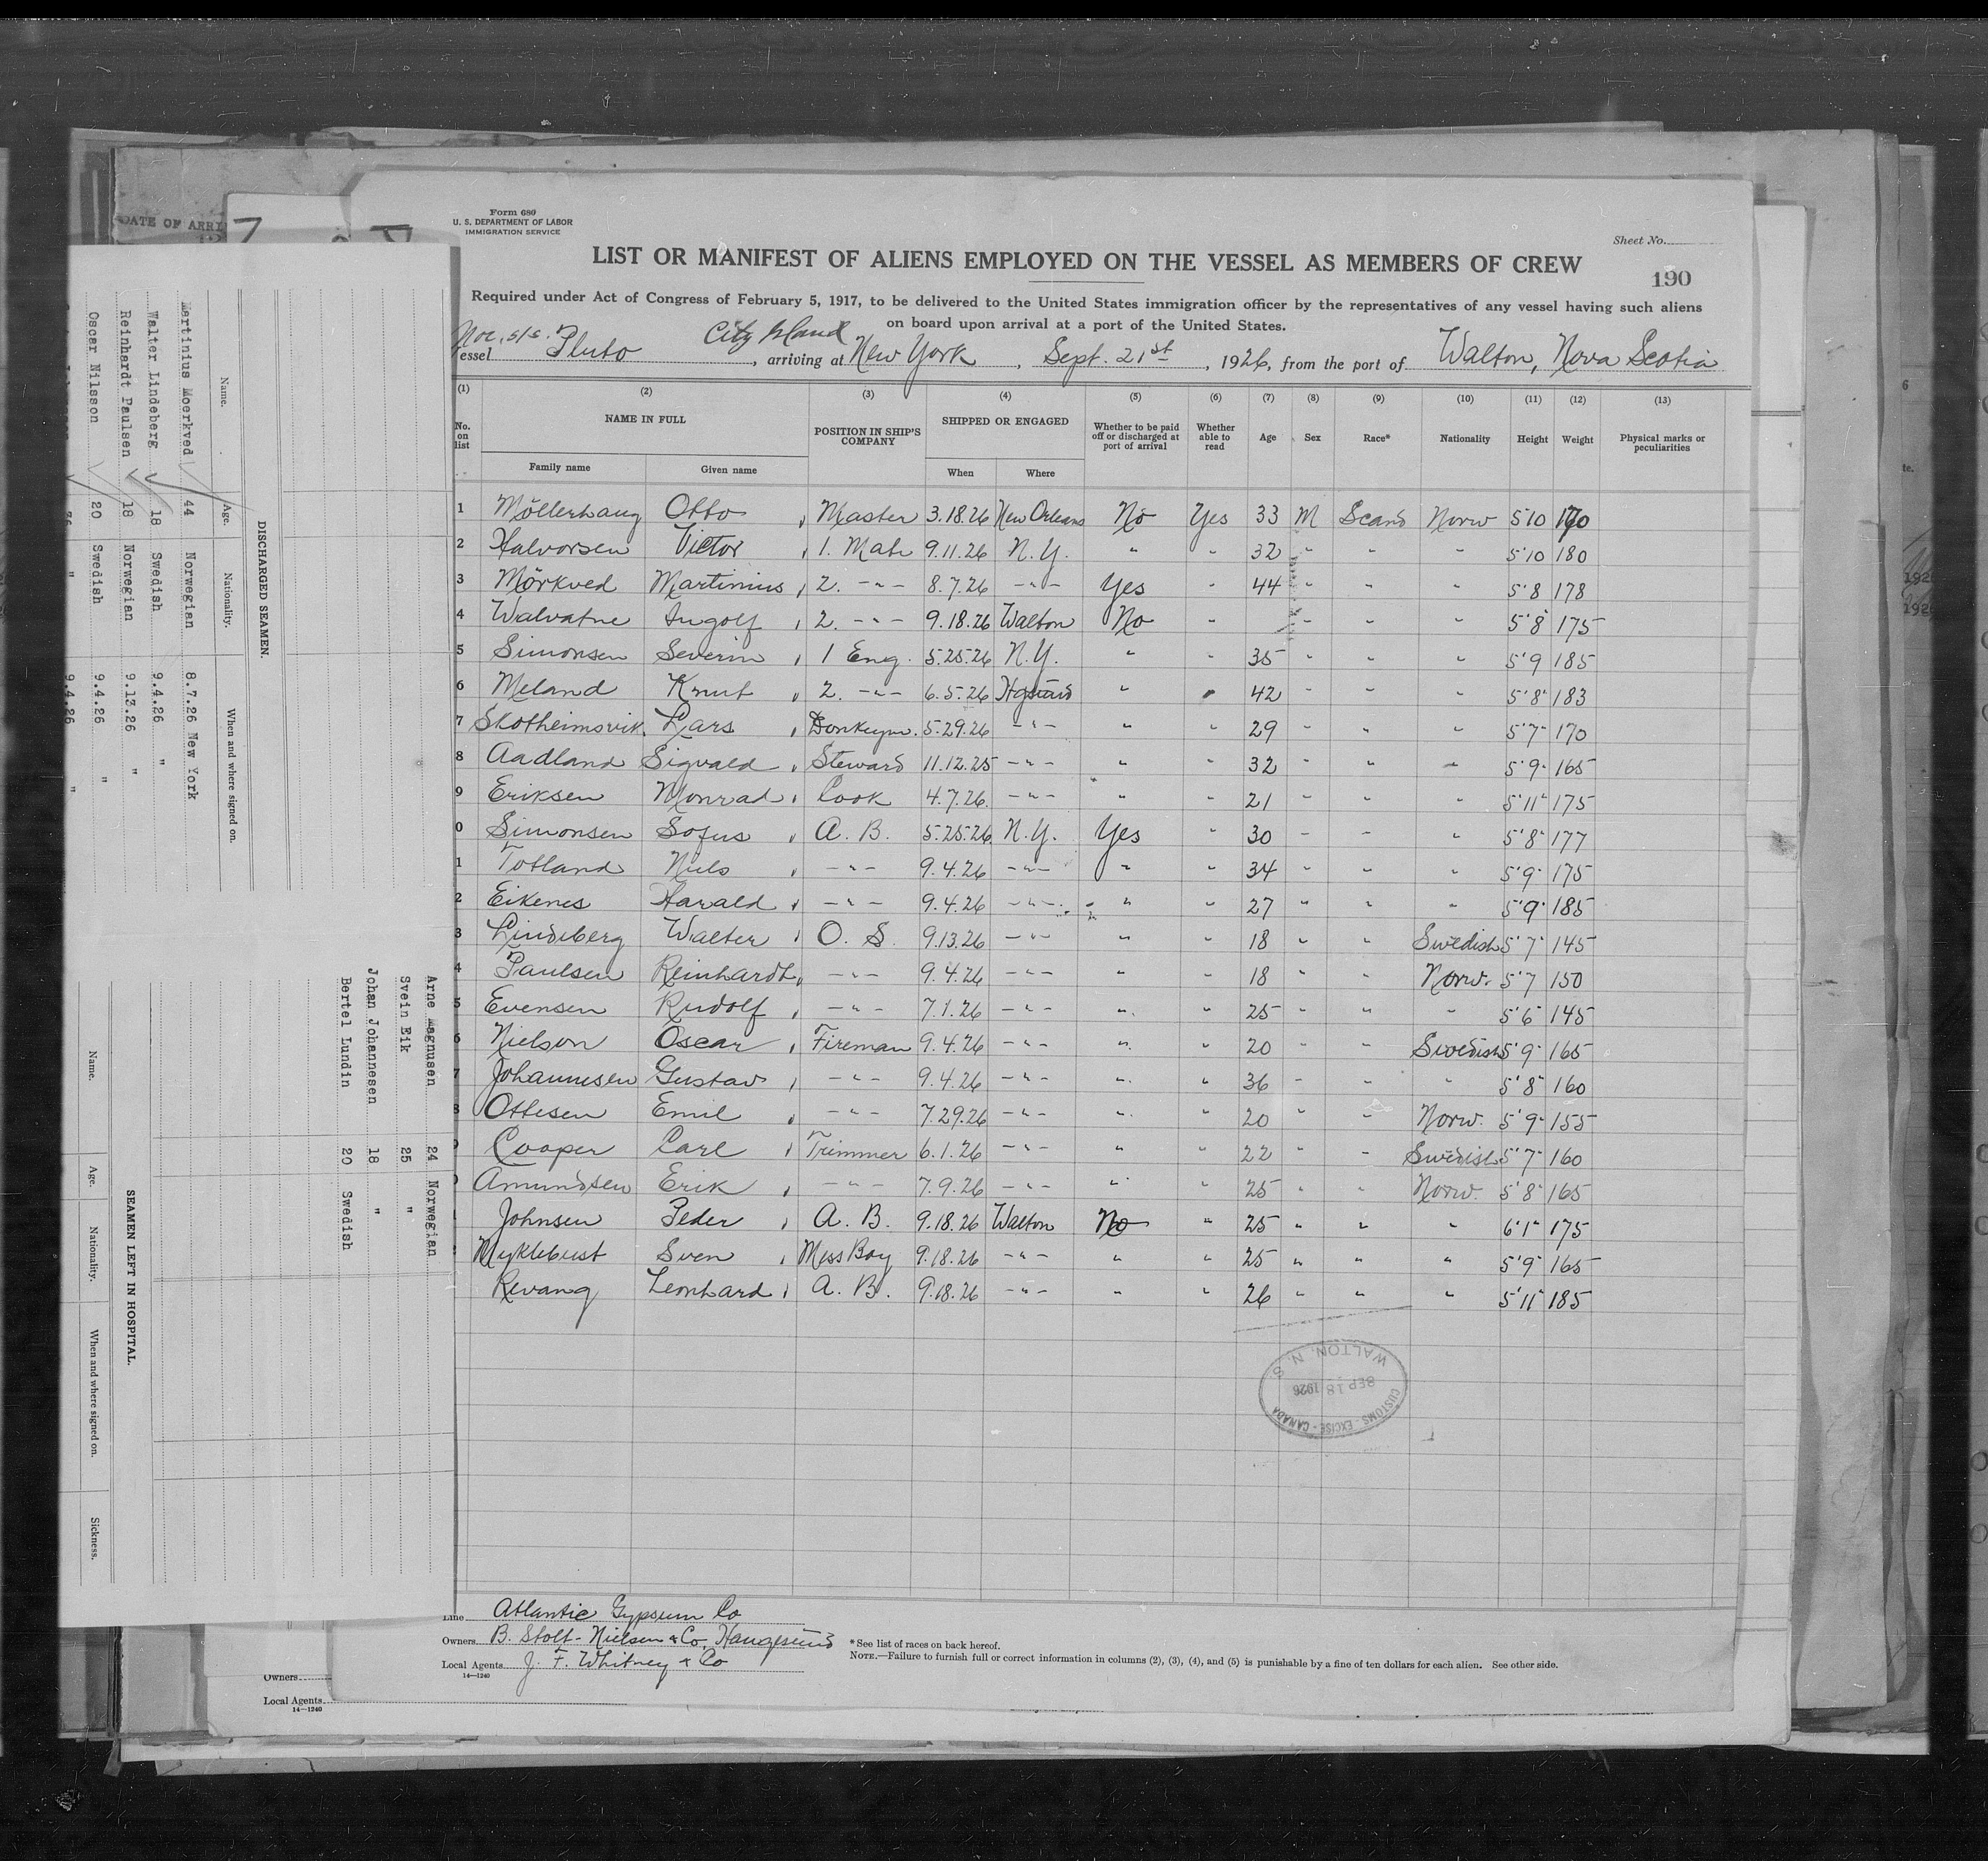 DATE OF ARRI
Form 680
U. S. DEPARTMENT OF LABOR
IMMIGRATION SERVICE
Sheet No.
LIST OR MANIFEST OF ALIENS EMPLOYED ON THE VESSEL AS MEMBERS OF CREW
190
Required under Act of Congress of February 5, 1917, to be delivered to the United States immigration officer by the representatives of any vessel having such aliens
on board upon arrival at a port of the United States.
Nor. s/s. City Island
essel Pluto, arriving at New York, Sept. 21st, 1926, from the port of Walton, Nova Scotia
(1) (2) (3) (4) (5) (6) (7) (8) (9) (10) (11) (12) (13)
No. on list NAME IN FULL POSITION IN SHIP'S COMPANY SHIPPED OR ENGAGED Whether to be paid off or discharged at port of arrival Whether able to read Age Sex Race* Nationality Height Weight Physical marks or peculiarities
Family name Given name When Where
1 Möllerhaug Otto Master 3.18.26 New Orleans No Yes 33 M Scand Norw 5'10 170
2 Halvorsen Victor 1. Mate 9.11.26 N.Y. " " 32 " " " 5'10 180
3 Mörkved Martinius 2. -"- 8.7.26 -"- Yes " 44 " " " 5'8 178
4 Walvatne Ingolf 2. -"- 9.18.26 Walton No " " " " 5'8 175
5 Simonsen Severin 1 Eng. 5.25.26 N.Y. " " 35 " " " 5'9 185
6 Meland Knut 2. -"- 6.5.26 Hgsund " " 42 " " " 5'8" 183
7 Skotheimsvik Lars Donkeym. 5.29.26 -"- " " 29 " " " 5'7" 170
8 Aadland Sigvald Steward 11.12.25 -"- " " 32 " " " 5'9" 165
9 Eriksen Monrad Cook 4.7.26 -"- " " 21 " " " 5'11" 175
0 Simonsen Sofus A. B. 5.25.26 N.Y. Yes " 30 " " " 5'8" 177
1 Totland Nils -"- 9.4.26 -"- " " 34 " " " 5'9" 175
2 Eikenes Harald -"- 9.4.26 -"- " " 27 " " " 5'9" 185
3 Lindeberg Walter O. S. 9.13.26 -"- " " 18 " " Swedish 5'7" 145
4 Paulsen Reinhardt -"- 9.4.26 -"- " 18 " " Norw. 5'7 150
5 Evensen Rudolf -"- 7.1.26 -"- " " 25 " " " 5'6" 145
6 Nielson Oscar Fireman 9.4.26 -"- " " 20 " " Swedish 5'9" 165
7 Johannesen Gustav -"- 9.4.26 -"- " " 36 " " " 5'8" 160
8 Ottesen Emil -"- 7.29.26 -"- " " 20 " " Norw. 5'9" 155
Cooper Carl Trimmer 6.1.26 -"- " " 22 " " Swedish 5'7" 160
Amundsen Erik -"- 7.9.26 -"- " " 25 " " Norw. 5'8" 165
Johnsen Peder A. B. 9.18.26 Walton No " 25 " " " 6'1" 175
Myklebust Sven Mess Boy 9.18.26 -"- " " 25 " " " 5'9" 165
Revang Leonhard A. B. 9.18.26 -"- " " 26 " " " 5'11" 185
CUSTOMS - EXCISE - CANADA
SEP 18 1926
WALTON, N. S.
Line Atlantic Gypsum Co
Owners B. Stolt-Nielsen & Co, Haugesund
Local Agents J. F. Whitney & Co
14—1240
*See list of races on back hereof.
NOTE.—Failure to furnish full or correct information in columns (2), (3), (4), and (5) is punishable by a fine of ten dollars for each alien. See other side.
Owners
Local Agents
14—1240
DISCHARGED SEAMEN.
Name. Age. Nationality. When and where signed on.
Martinius Moerkved 44 Norwegian 8.7.26 New York
Walter Lindeberg 18 Swedish 9.4.26 "
Reinhardt Paulsen 18 Norwegian 9.13.26 "
Oscar Nilsson 20 Swedish 9.4.26 "
36 " 9.4.26 "
Arne Magnusen 24 Norwegian
Svein Eik 25 "
Johan Johannesen 18 "
Bertel Lundin 20 Swedish
SEAMEN LEFT IN HOSPITAL.
Name. Age. Nationality. When and where signed on. Sickness.